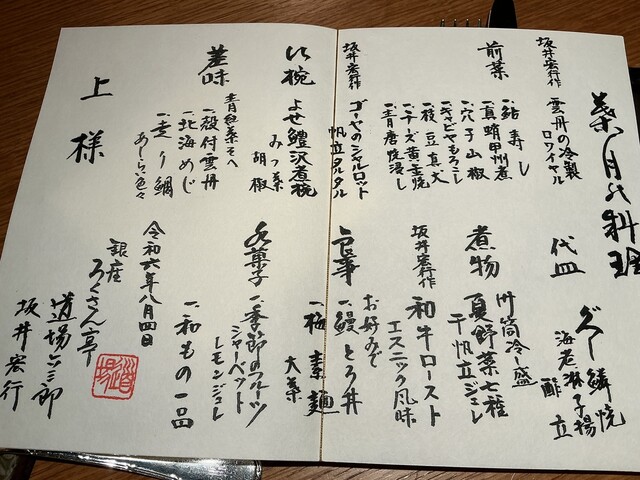 葉月の料理
坂井宏行作
雲丹の冷製
ロワイヤル
前菜
一、鮎寿し
一、真蛸甲州煮
一、穴子山椒
一、キャビヤもろこし
一、枝豆真丈
一、チーズ黄金焼
一、青唐焼浸し
坂井宏行作
ゴーヤのシャルロット
帆立タルタル
吸椀
よせ鱧沢煮椀
みつ葉
胡椒
差味
青紅葉そへ
一、殻付雲丹
一、北海めじ
一、走り鯛
あしらい色々
上様
代皿
グジ鱗焼
海老柿子揚
酢立
煮物
竹筒冷し盛
夏野菜七種
干帆立ジュレ
坂井宏行作
和牛ロースト
エスニック風味
食事
お好みで
一、鰻とろ丼
一、極素麺
大葉
水菓子
一、季節のフルーツ
シャーベット
レモンジュレ
一、和もの一品
令和六年八月四日
銀座
ろくさん亭
道場六三郎
坂井宏行
道場